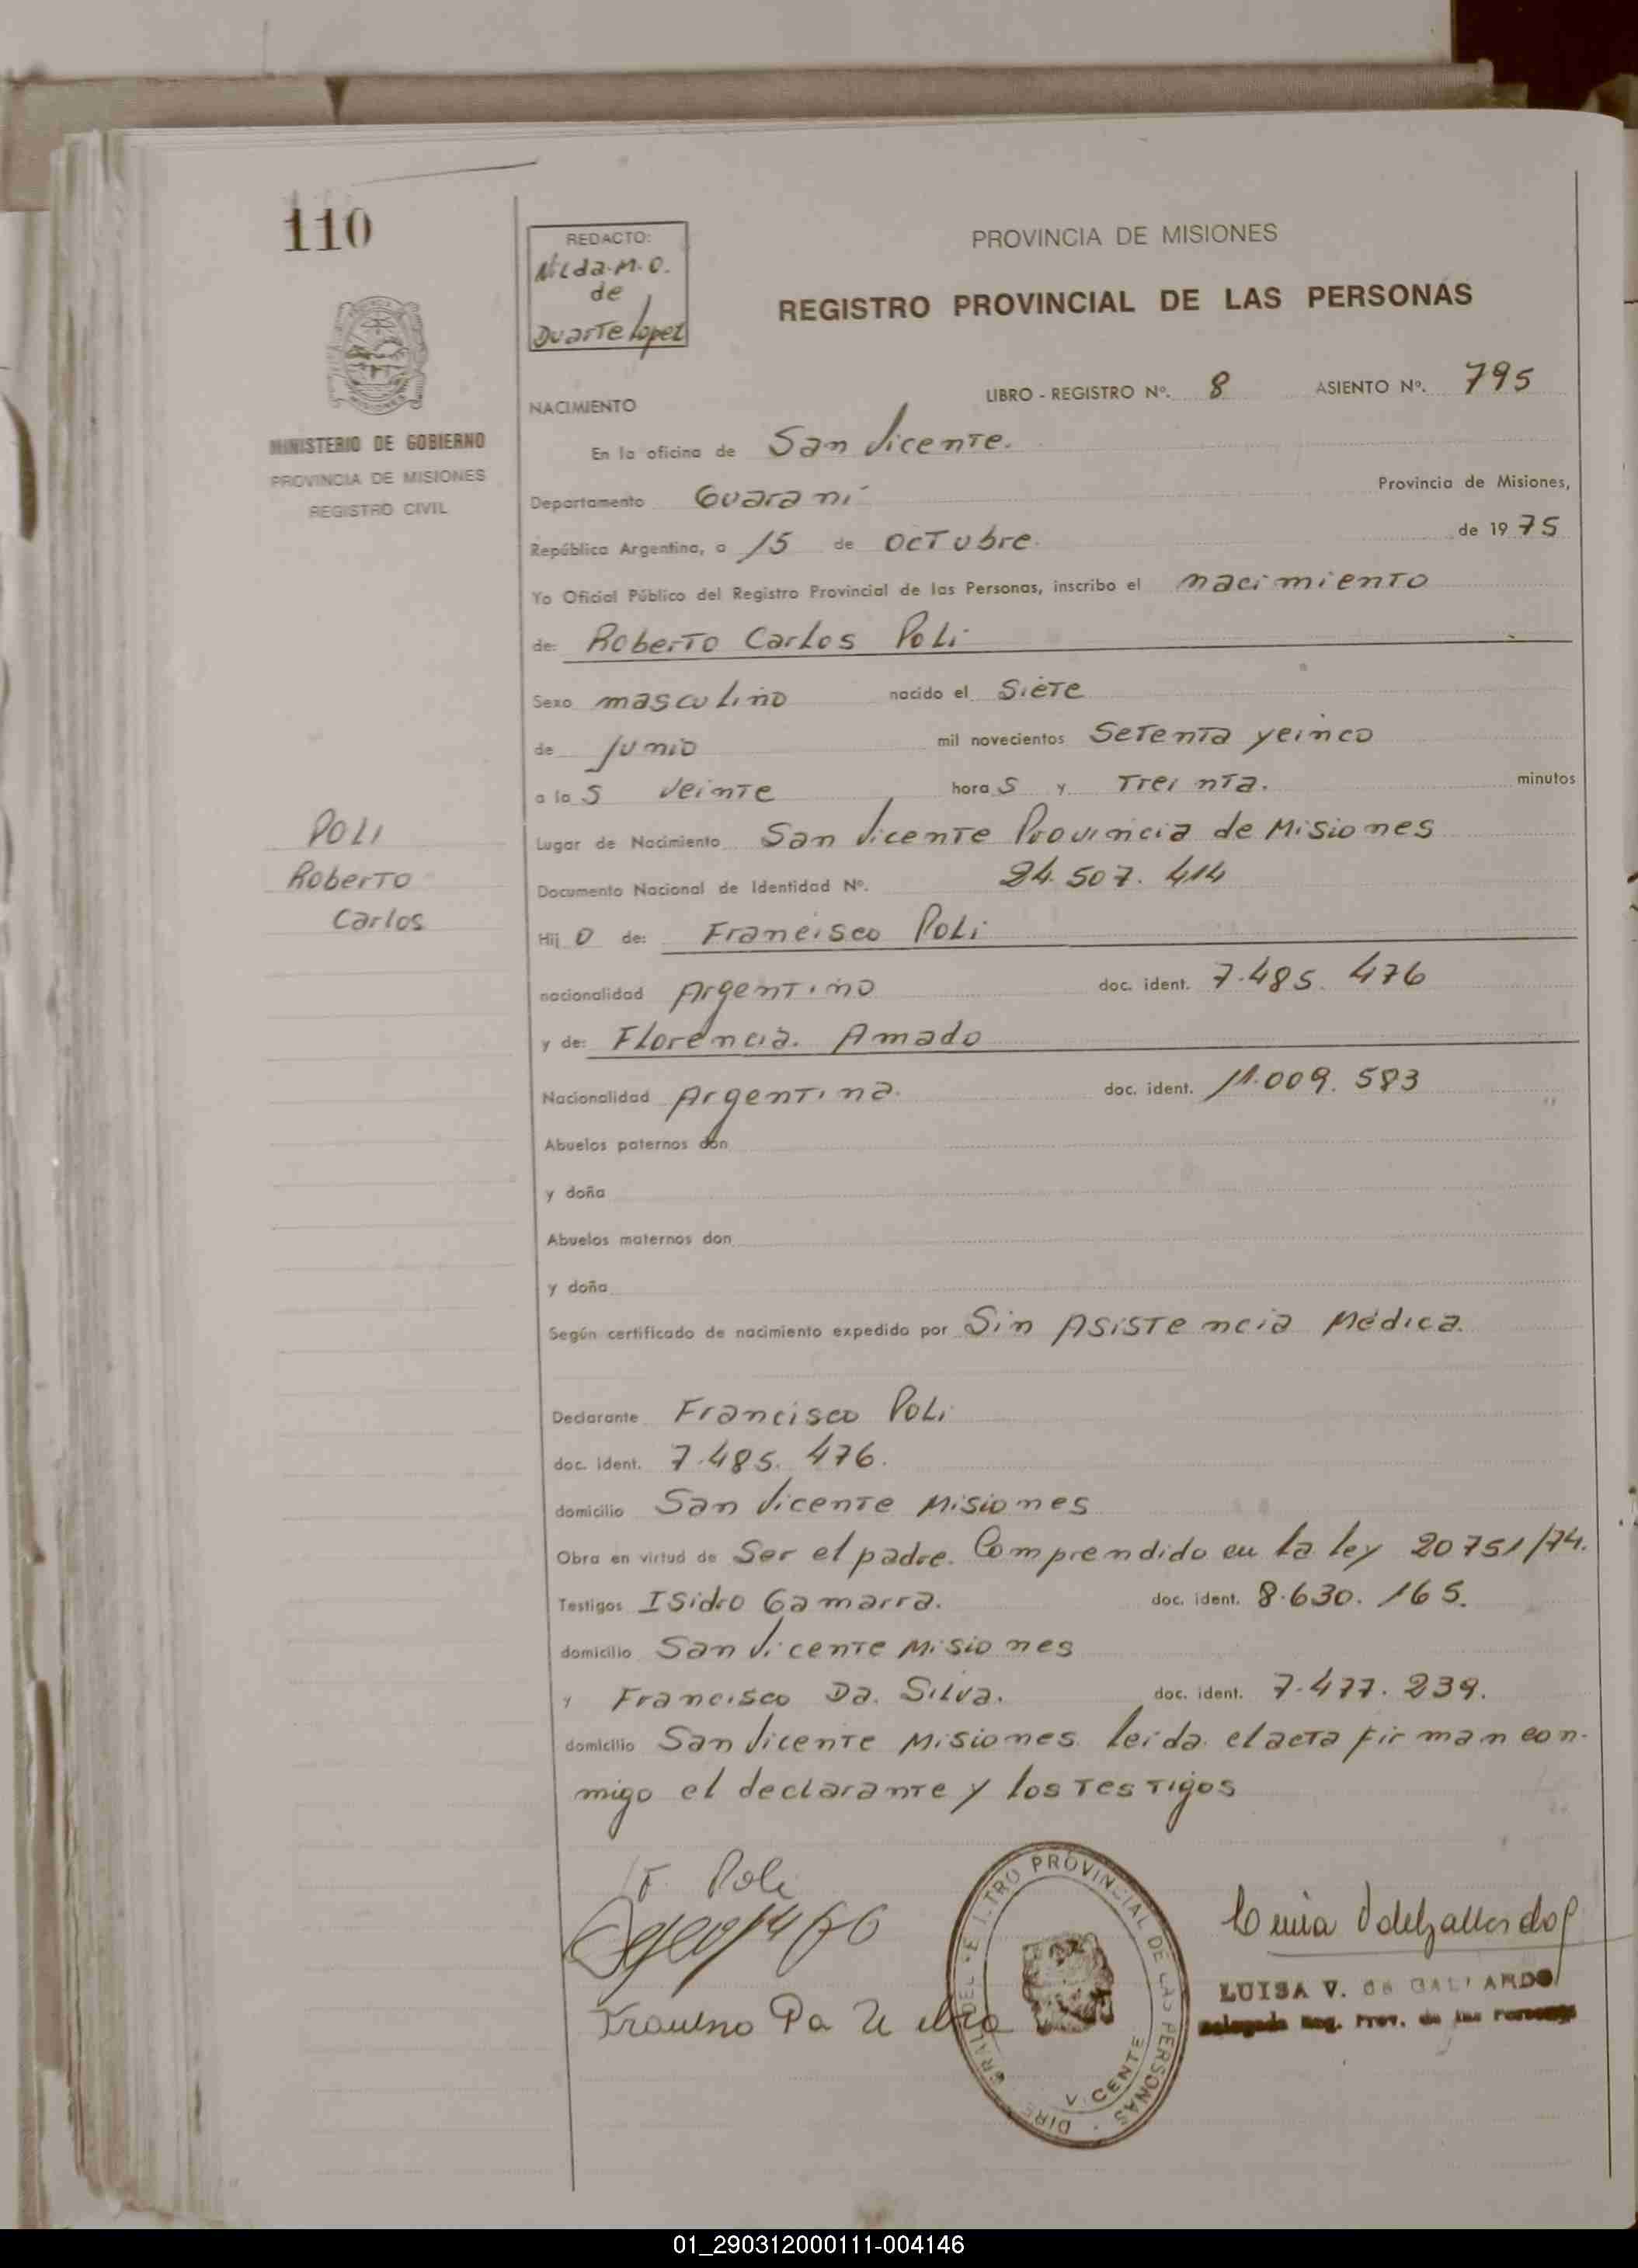 110
REDACTO:
Nilda. M. O.
de
Duarte Lopez
PROVINCIA DE MISIONES
REGISTRO PROVINCIAL DE LAS PERSONAS
MINISTERIO DE GOBIERNO
PROVINCIA DE MISIONES
REGISTRO CIVIL
LIBRO - REGISTRO Nº. 8 ASIENTO Nº. 795
NACIMIENTO
En la oficina de San Vicente.
Departamento Guaraní Provincia de Misiones,
República Argentina, a 15 de Octubre. de 1975
Yo Oficial Público del Registro Provincial de las Personas, inscribo el nacimiento
de: Roberto Carlos Poli
Sexo masculino nacido el Siete
de Junio mil novecientos Setenta y cinco
a las Veinte horas y Treinta. minutos
POLI
Roberto
Carlos
Lugar de Nacimiento San Vicente Provincia de Misiones
Documento Nacional de Identidad Nº. 24.507.414
Hijo de: Francisco Poli
nacionalidad Argentino doc. ident. 7.485.476
y de: Florencia. Amado
Nacionalidad Argentina. doc. ident. 11.009.583
Abuelos paternos don
y doña
Abuelos maternos don
y doña
Según certificado de nacimiento expedido por Sin Asistencia Médica.
Declarante Francisco Poli
doc. ident. 7.485.476.
domicilio San Vicente Misiones
Obra en virtud de Ser el padre. Comprendido en la ley 20751/74.
Testigos Isidro Gamarra. doc. ident. 8.630.165.
domicilio San Vicente Misiones
y Francisco Da. Silva. doc. ident. 7.477.239.
domicilio San Vicente Misiones. leida el acta firman con-
migo el declarante y los testigos
F. Poli
PROVINCIAL DE LAS PERSONAS
LUISA V. de GALLARDO
Delegada Reg. Prov. de las Personas
01_290312000111-004146